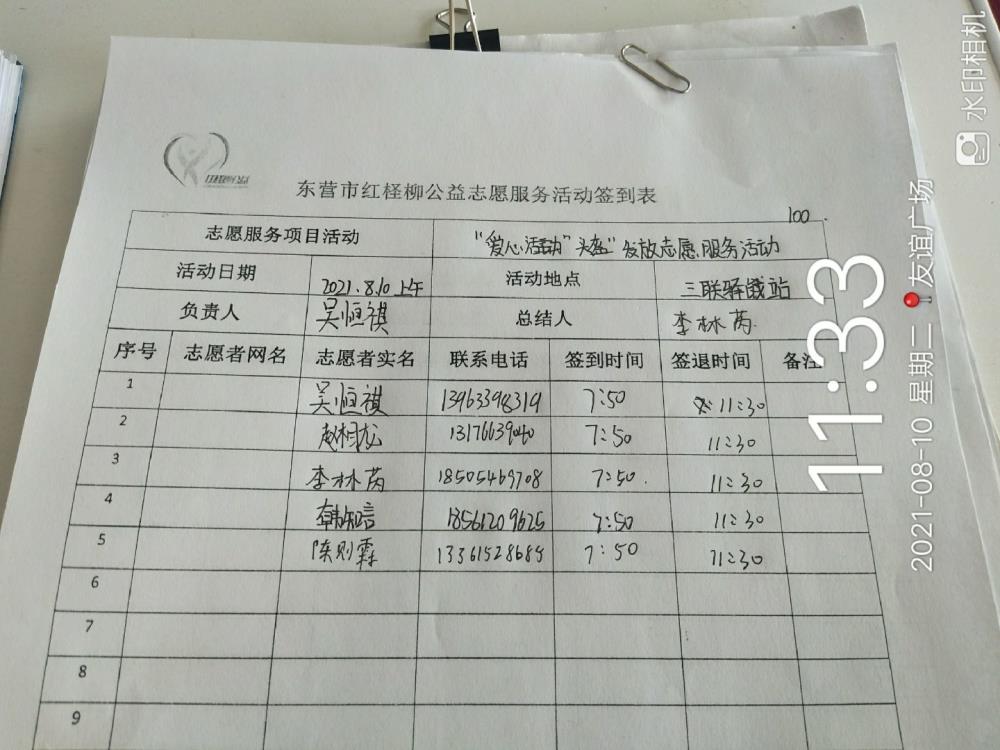 东营市红柽柳公益志愿服务活动签到表
100
志愿服务项目活动 "爱心活动"头盔"发放志愿服务活动
活动日期 2021.8.10 上午 活动地点 三联驿城站
负责人 吴恒祺 总结人 李林芮
序号 志愿者网名 志愿者实名 联系电话 签到时间 签退时间 备注
1 吴恒祺 13963398319 7:50 11:30
2 赵相龙 13176639040 7:50 11:30
3 李林芮 18505469708 7:50 11:30
4 韩知言 18561209625 7:50 11:30
5 陈则霖 13361528689 7:50 11:30
6
7
8
9
11:33
2021-08-10 星期二 友谊广场
水印相机